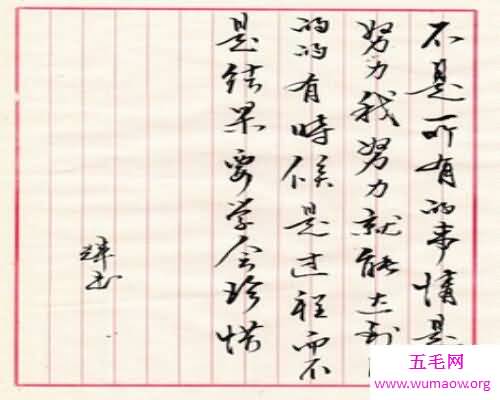 不是所有的事情是
努力我努力就能达到
的的有時候是过程而不
是结果要学会珍惜
书
五毛网
www.wumaow.org